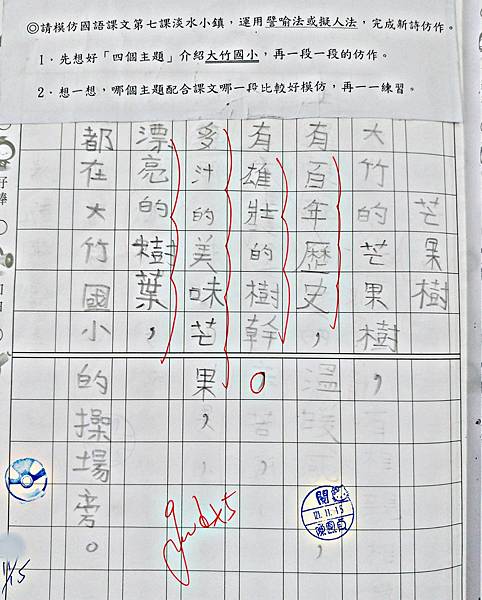 ◎請模仿國語課文第七課淡水小鎮，運用譬喻法或擬人法，完成新詩仿作。
1．先想好「四個主題」介紹大竹國小，再一段一段的仿作。
2．想一想，哪個主題配合課文哪一段比較好模仿，再一一練習。
芒果樹
大竹的芒果樹，
有百年歷史，
有雄壯的樹幹。
多汁的美味芒果，
漂亮的樹葉，
都在大竹國小的操場旁。
好棒
Goodx5
閱
11.15